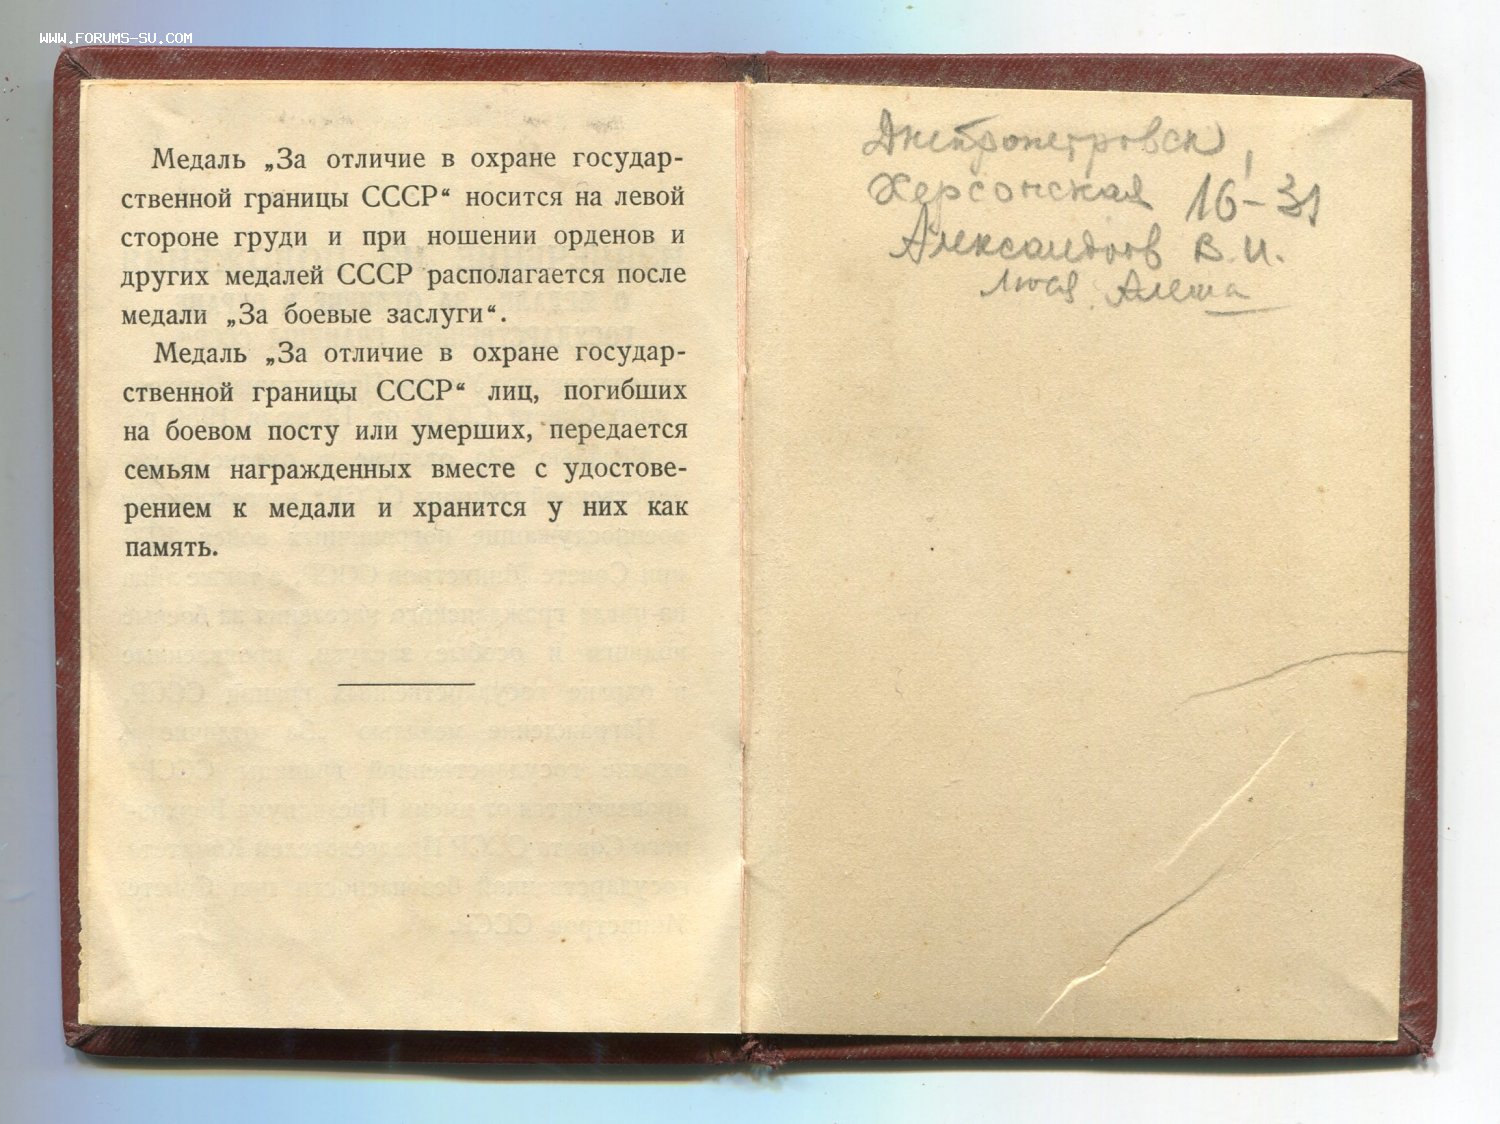 WWW.FORUMS-SU.COM
Медаль „За отличие в охране государ-
ственной границы СССР“ носится на левой
стороне груди и при ношении орденов и
других медалей СССР располагается после
медали „За боевые заслуги“.
Медаль „За отличие в охране государ-
ственной границы СССР“ лиц, погибших
на боевом посту или умерших, передается
семьям награжденных вместе с удостове-
рением к медали и хранится у них как
память.
Днепропетровск,
Херсонская 16-31
Александров В.И.
Люся Алеша